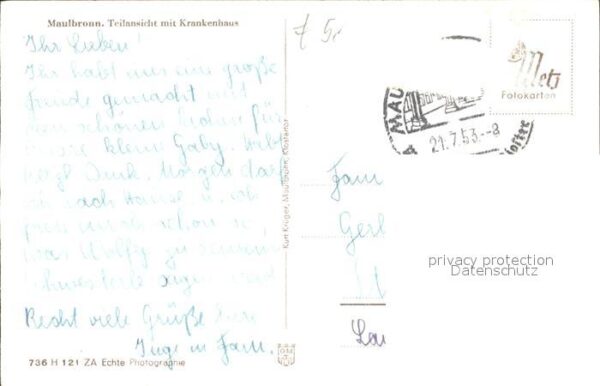 Maulbronn. Teilansicht mit Krankenhaus
Ihr Lieben!
Ihr habt mir eine große
Freude gemacht mit
dem schönen für
unsere kleine Gaby.
herzl. Dank. Morgen darf
ich nach Hause u. ich
freu mich schon so,
was Wolfg. zu seinem
Schwesterle sagen wird
Recht viele Grüße
Inge m. Fam.
736 H 121 ZA Echte Photographie
Kurt Krüger, Maulbronn, Klostertor
£ 5,-
MAU
21.7.53.-8
Metz
Fotokarten
Fam
Gerl
Lau
privacy protection
Datenschutz